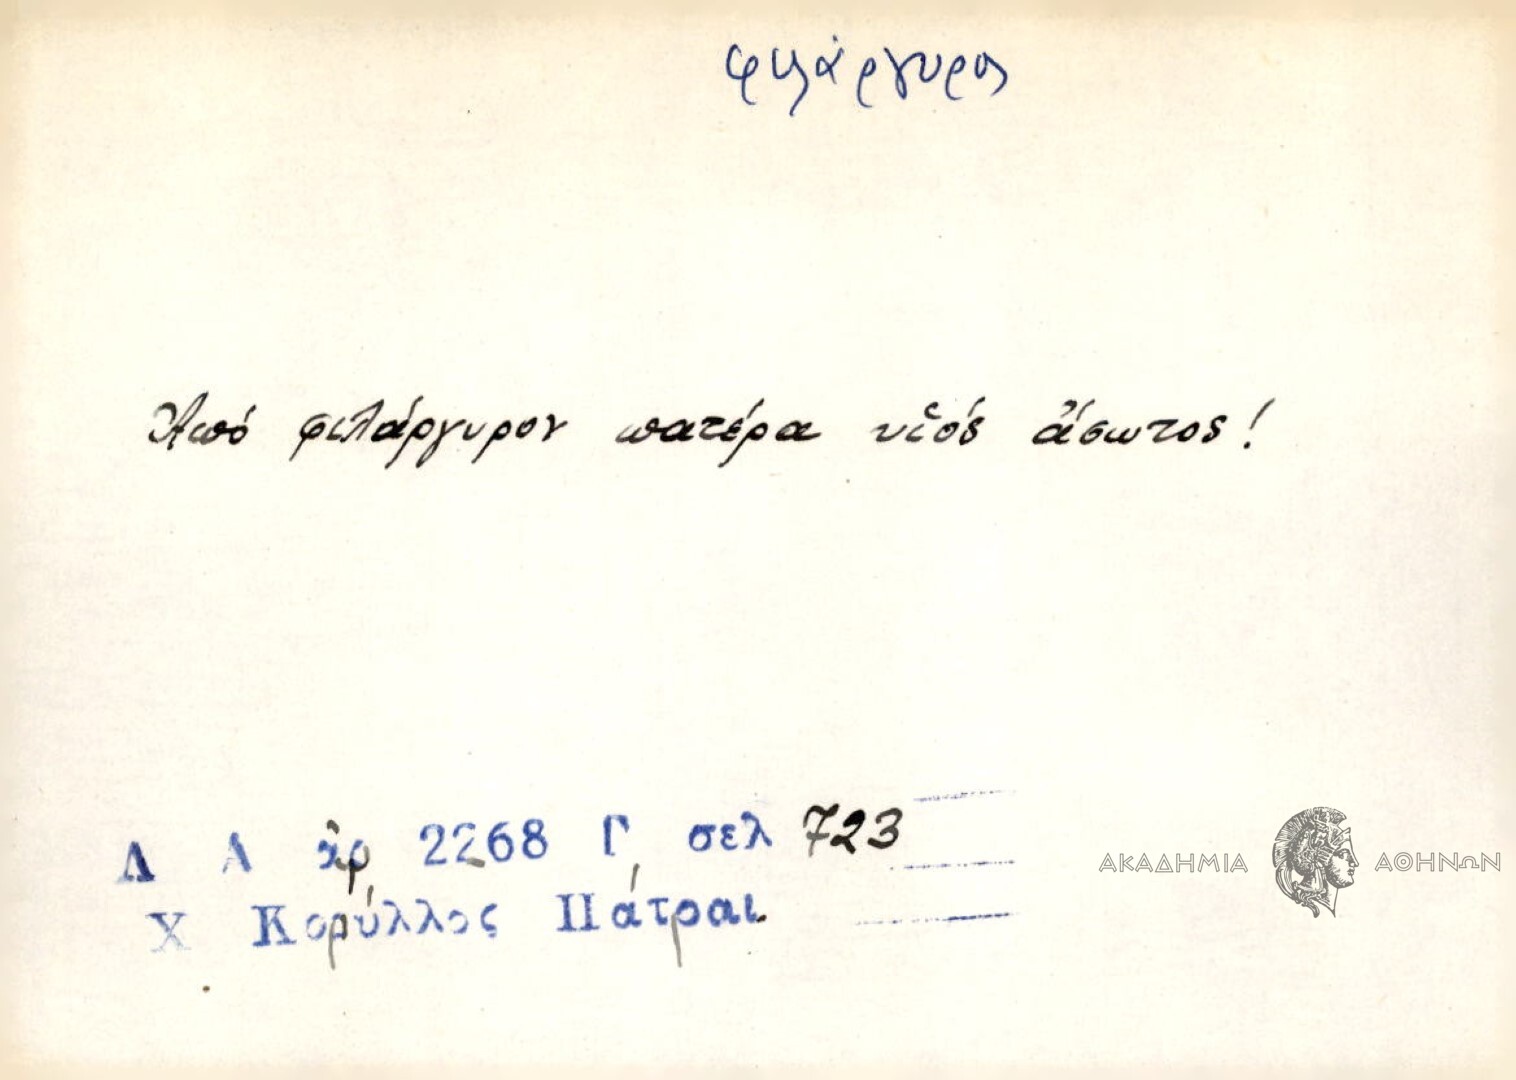 φιλάργυρος
Ἀπό φιλάργυρον πατέρα υἱός ἄσωτος!
Λ Α ἀρ 2268 Γ, σελ 723
Χ Κορύλλος Πάτραι
ΑΚΑΔΗΜΙΑ ΑΘΗΝΩΝ